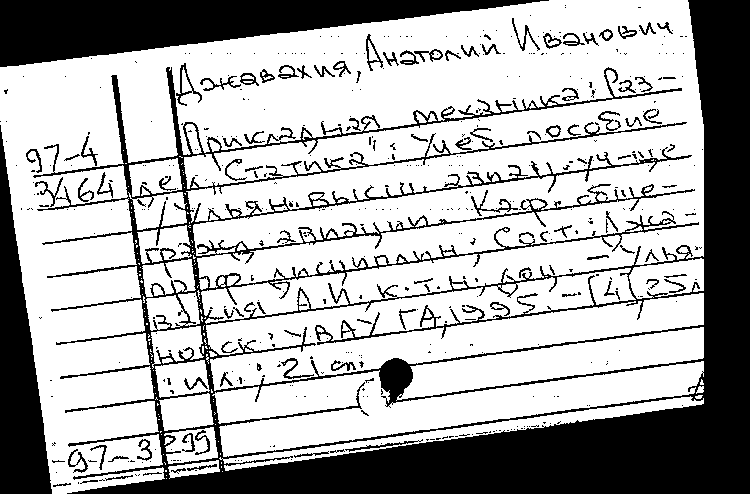 Джавахия, Анатолий Иванович
Прикладная механика: Раз-
97-4
3464
дел "Статика": Учеб. пособие
/Ульян. высш. авиац. уч-ще
гражд. авиации. Каф. обще-
проф. дисциплин; Сост.: Джа-
вахия А.И., к.т.н., доц. - Улья-
новск: УВАУ ГА, 1995. - [4], 25 л.
: ил.; 21 см.
97-3299